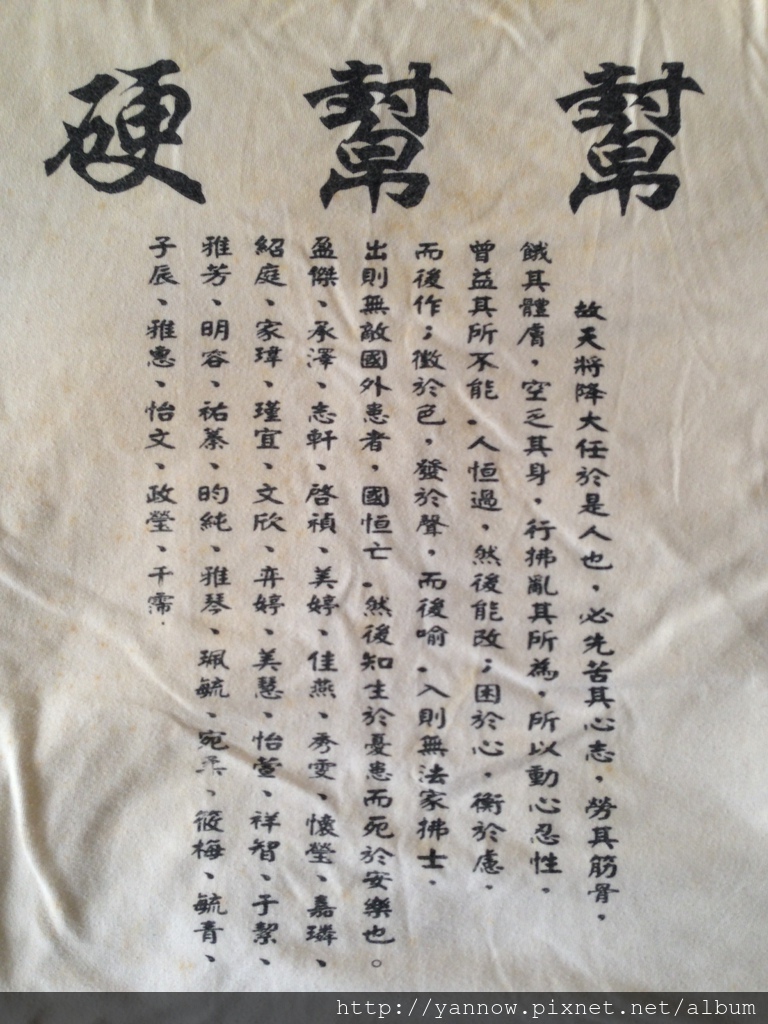 幫幫硬
故天將降大任於是人也，必先苦其心志，勞其筋骨，
餓其體膚，空乏其身，行拂亂其所為，所以動心忍性，
曾益其所不能．人恒過，然後能改；困於心，衡於慮，
而後作；徵於色，發於聲，而後喻．入則無法家拂士，
出則無敵國外患者，國恒亡．然後知生於憂患而死於安樂也。
盈傑、承澤、志軒、啓禎、美婷、佳燕、秀雯、懷瑩、嘉璘、
紹庭、家瑋、瑾宜、文欣、弈婷、美慧、怡萱、祥智、于絜、
雅芳、明容、祐蓁、昀純、雅琴、珮毓、宛柔、筱梅、毓青、
子辰、雅惠、怡文、政瑩、千霈．
http://yannow.pixnet.net/album